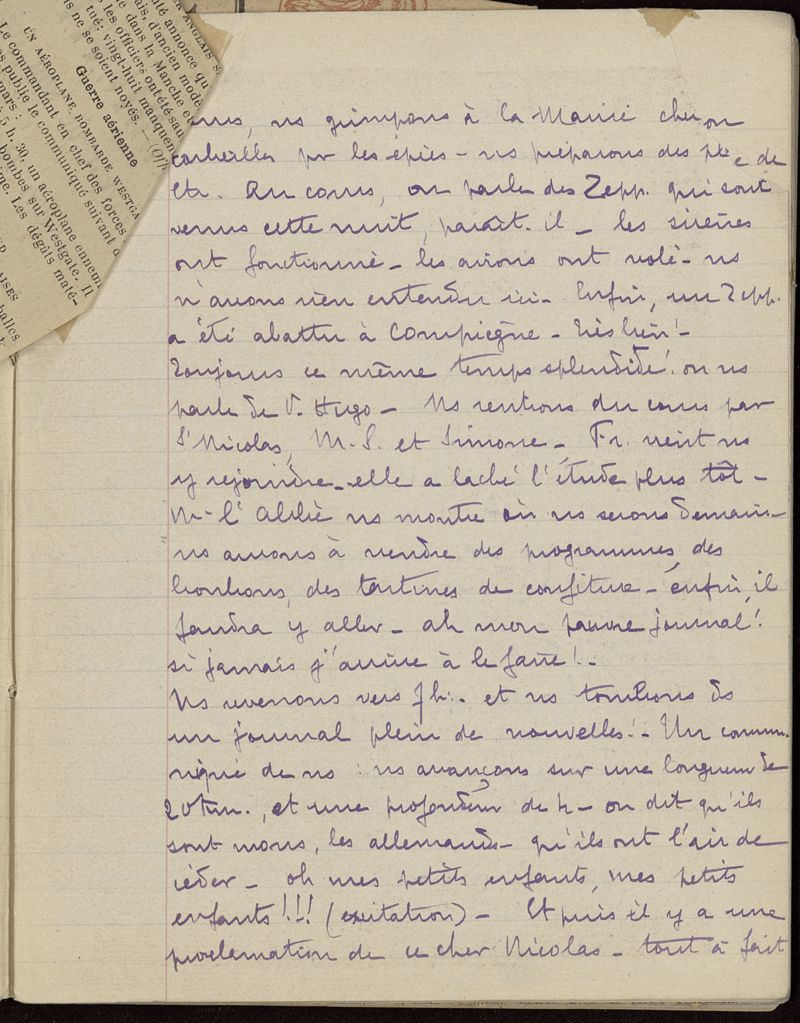 ANGLAIS
té annonce qu
ais, d'ancien modè
les officiers ont été sau
tué; vingt-huit manquen
e dans la Manche et
s ne se soient noyés. — (Off
Guerre aérienne
UN AÉROPLANE BOMBARDE WESTGA
Le commandant en chef des forces
s publie le communiqué suivant d
mars :
5 h. 30, un aéroplane ennemi
bombes sur Westgate. Il
me. Les dégâts maté-
AISES
balles
ns, ns grimpons à la Mairie cher
corbeilles pr les épies - ns préparons des pte de
Ctr. Au cours, on parle des Zepp. qui sont
venus cette nuit, paraît-il - les sirènes
ont fonctionné - les avions ont volé - ns
n'avons rien entendu ici - Enfin, un Zepp.
a été abattu à Compiègne - très bien! -
Toujours ce même temps splendide! on ns
parle de V. Hugo - Ns rentrons du cours par
St Nicolas, M.-S. et Simone - Fr. vient ns
y rejoindre - elle a laché l'étude plus tôt -
M- l'Abbé ns montre où ns serons demain -
ns aurons à vendre des programmes, des
bonbons, des tartines de confiture - enfin, il
faudra y aller - ah mon pauvre journal!
si jamais j'arrive à le faire! -
Ns revenons vers 7h. et ns tombons ds
un journal plein de nouvelles! - Un commu-
niqué de ns : ns avançons sur une longueur de
20 km., et une profondeur de 4 - on dit qu'ils
sont mous, les allemands - qu'ils ont l'air de
céder - oh mes petits enfants, mes petits
enfants!!! (exitation) - Et puis il y a une
proclamation de ce cher Nicolas - tout à fait